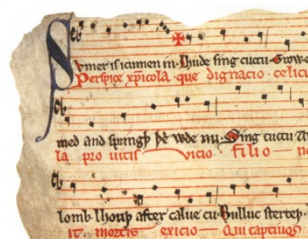 Svmer is icumen in. Lhude sing cuccu. Groweþ
Perspice xp̄icola. que dignacio. celicus
med and springþ þe wde nu. Sing cuccu
la pro uitis vicio. filio
lomb. lhouþ after calue cu. Bulluc sterteþ.
it mortis exicio. Qui captiuos